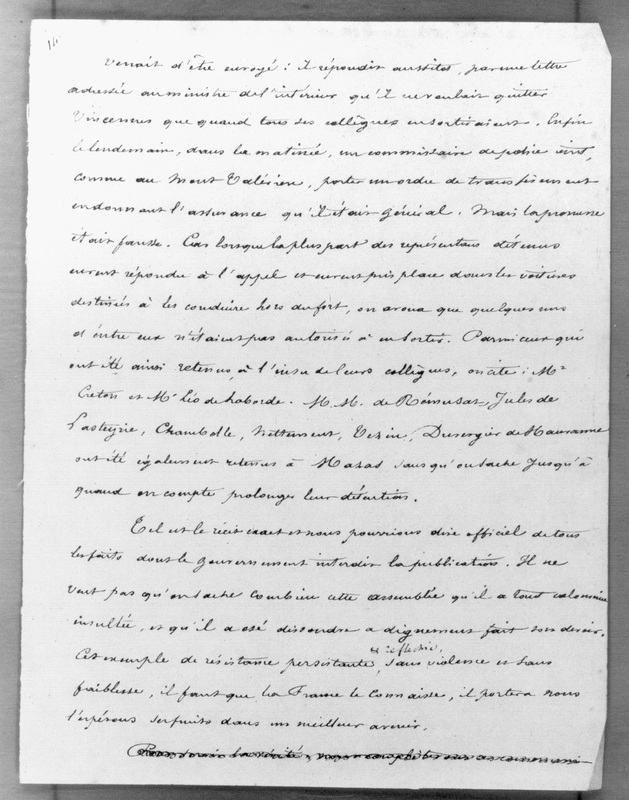 14
venait d'être envoyé : il répondit aussitôt, par une lettre
adressée au ministre de l'intérieur qu'il ne voulait quitter
Vincennes que quand tous ses collègues en sortiraient. Enfin
le lendemain, dans la matinée, un commissaire de police vint,
comme au Mont Valérien, porter un ordre de transfèrement
en donnant l'assurance qu'il était général. Mais la promesse
était fausse. Car lorsque la plus part des représentans détenus
eurent répondu à l'appel et eurent pris place dans les voitures
destinées à les conduire hors du fort, on avoua que quelques uns
d'entre eux n'étaient pas autorisés à en sortir. Parmi ceux qui
ont été ainsi retenus, à l'insu de leurs collègues, on cite : Mr
Creton et Mr Léo de Laborde. M. M. de Rémusat, Jules de
Lasteyrie, Chambolle, Nettement, Vezin, Duvergier de Hauranne
ont été également retenus à Mazas sans qu'on sache jusqu'à
quand on compte prolonger leur détention.
Tel est le récit exact et nous pourrions dire officiel de tous
les faits dont le gouvernement interdit la publication. Il ne
veut pas qu'on sache combien cette assemblée qu'il a tant calomniée
insultée, et qu'il a osé dissoudre a dignement fait son devoir.
Cet exemple de résistance persistante et réfléchie, sans violence et sans
faiblesse, il faut que la France le connaisse, il portera nous
l'espérons ses fruits dans un meilleur avenir.